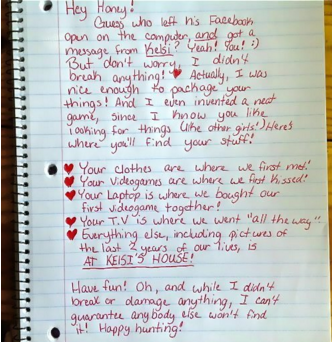 Hey Honey!
Guess who left his Facebook
open on the computer, and got a
message from Keisi? Yeah! You! :)
But don't worry, I didn't
break anything! ♥ Actually, I was
nice enough to package your
things! And I even invented a neat
game, since I know you like
looking for things (like other girls!) Here's
where you'll find your stuff!
♥ Your clothes are where we first met!
♥ Your Videogames are where we first kissed!
♥ Your Laptop is where we bought our
first videogame together!
♥ Your T.V is where we went "all the way".
♥ Everything else, including pictures of
the last 2 years of our lives, is
AT KEISI'S HOUSE!
Have fun! Oh, and while I didn't
break or damage anything, I can't
guarantee anybody else won't find
it! Happy hunting!